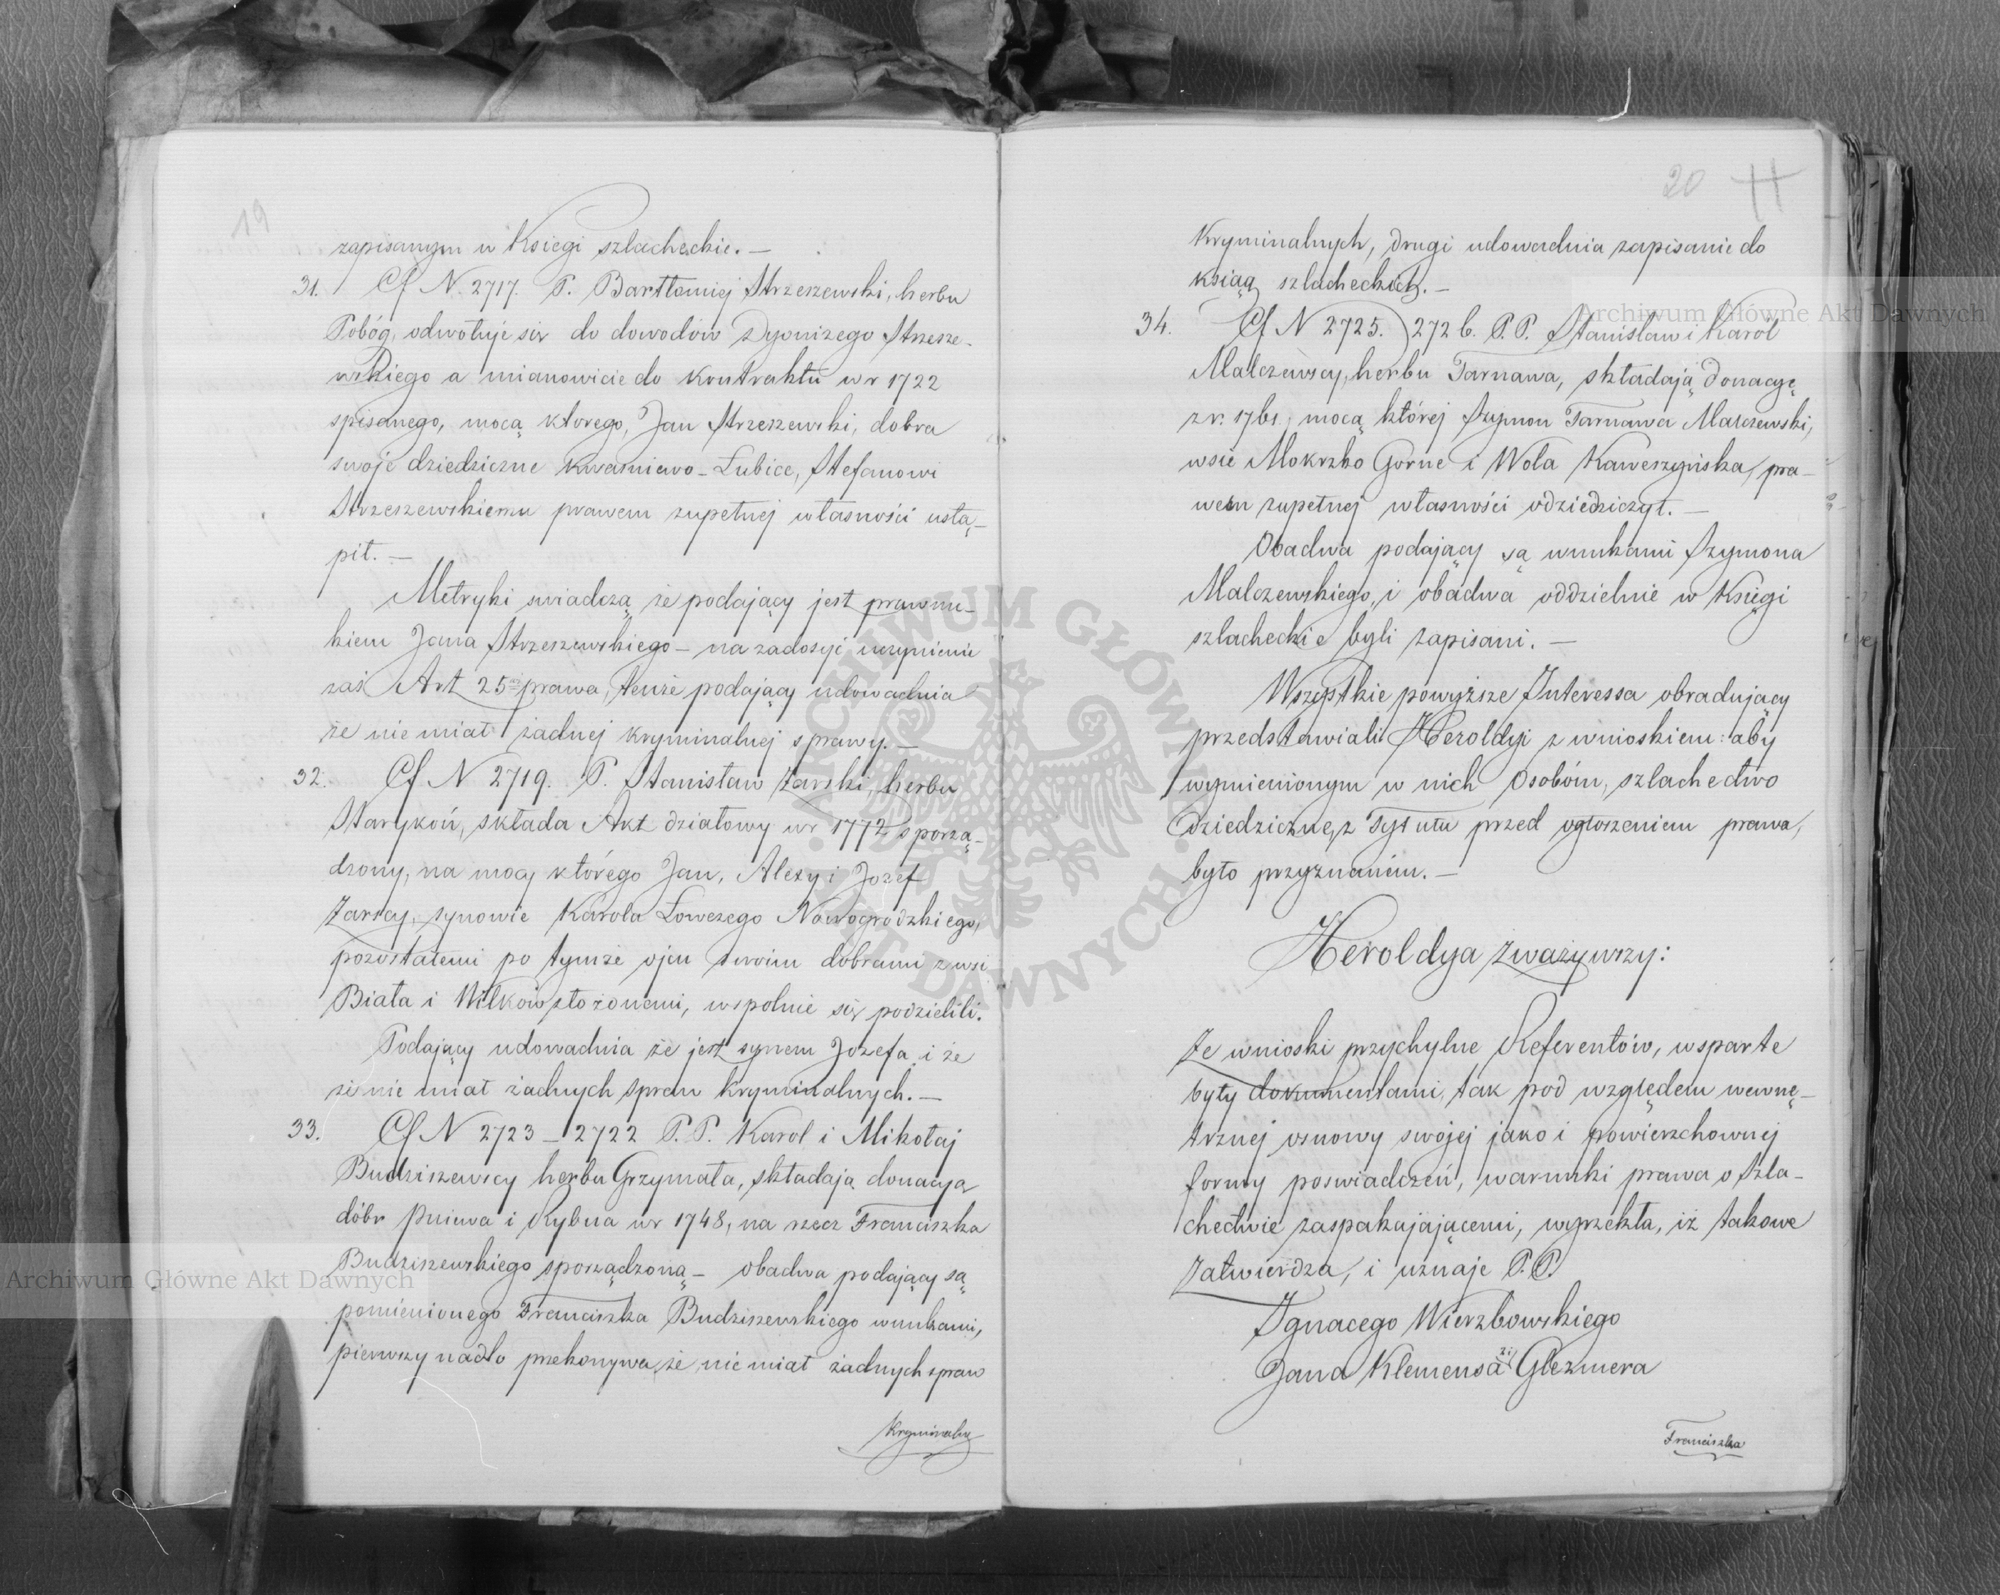 19
zapisanym w Księgi szlacheckie. —
31. Cf N. 2717. P. Bartłomiej Strzeszewski, herbu
Pobóg, odwołuje się do dowodów Dyonizego Strzesze-
wskiego a mianowicie do kontraktu w r 1722
spisanego, mocą którego, Jan Strzeszewski, dobra
swoje dziedziczne Kwasniewo-Lubice, Stefanowi
Strzeszewskiemu prawem zupełnej własności ustą-
pił. —
Metryki swiadczą, że podający jest prawnu-
kiem Jana Strzeszewskiego — na zadosyć uczynienie
zaś Art 25 prawa, tenże podający udowadnia
że nie miał żadnej kryminalnej sprawy. —
32. Cf N 2719. P. Stanisław Żarski, herbu
Starykoń, składa Akt działowy w r 1772 sporzą-
dzony, na mocy którego Jan, Alexy i Jozef
Żarscy, synowie Karola Łowczego Nowogrodzkiego,
pozostałemi po tymże ojcu swoim dobrami z wsi
Biała i Wilków złożonemi, wspolnie się podzielili.
Podający udowadnia że jest synem Jozefa i że
że nie miał żadnych spraw kryminalnych. —
33. Cf N 2723 — 2722 P.P. Karol i Mikołaj
Budziszewscy herbu Grzymała, składają donacyą
dóbr Pniewa i Rybna w r 1748, na rzecz Franciszka
Budziszewskiego sporządzoną — obadwa podający są
pomienionego Franciszka Budziszewskiego wnukami,
pierwszy nadto przekonywa, że nie miał żadnych spraw
Kryminalny
20
Kryminalnych, drugi udowadnia zapisanie do
ksiąg szlacheckich. —
34. Cf N 2725. 2726. P.P. Stanisław i Karol
Malczewscy, herbu Tarnawa, składają donacyę
z r. 1761, mocą której Szymon Tarnawa Malczewski,
wsie Mokrzko Gorne i Wola Kaweszyńska, pra-
wem zupełnej własności odziedziczył. —
Obadwa podający są wnukami Szymona
Malczewskiego, i obadwa oddzielnie w Księgi
szlacheckie byli zapisani. —
Wszystkie powyższe Interessa obradujący
przedstawiali Heroldyi z wnioskiem: aby
wymienionym w nich Osobom, szlachectwo
dziedziczne, z Tytułu przed ogłoszeniem prawa,
było przyznaném. —
Heroldya zważywszy:
Że wnioski przychylne Referentów, wsparte
były dokumentami, tak pod względem wewnę-
trznej osnowy swojej jako i powierzchownej
formy poswiadczeń, warunki prawa o Szla-
chectwie zaspakajającemi, wyrzekła, iż takowe
Zatwierdza, i uznaje P.P.
Ignacego Wierzbowskiego
Jana Klemensa Glezmera
Franciszka
Archiwum Główne Akt Dawnych
Archiwum Główne Akt Dawnych
ARCHIWUM GŁÓWNE AKT DAWNYCH